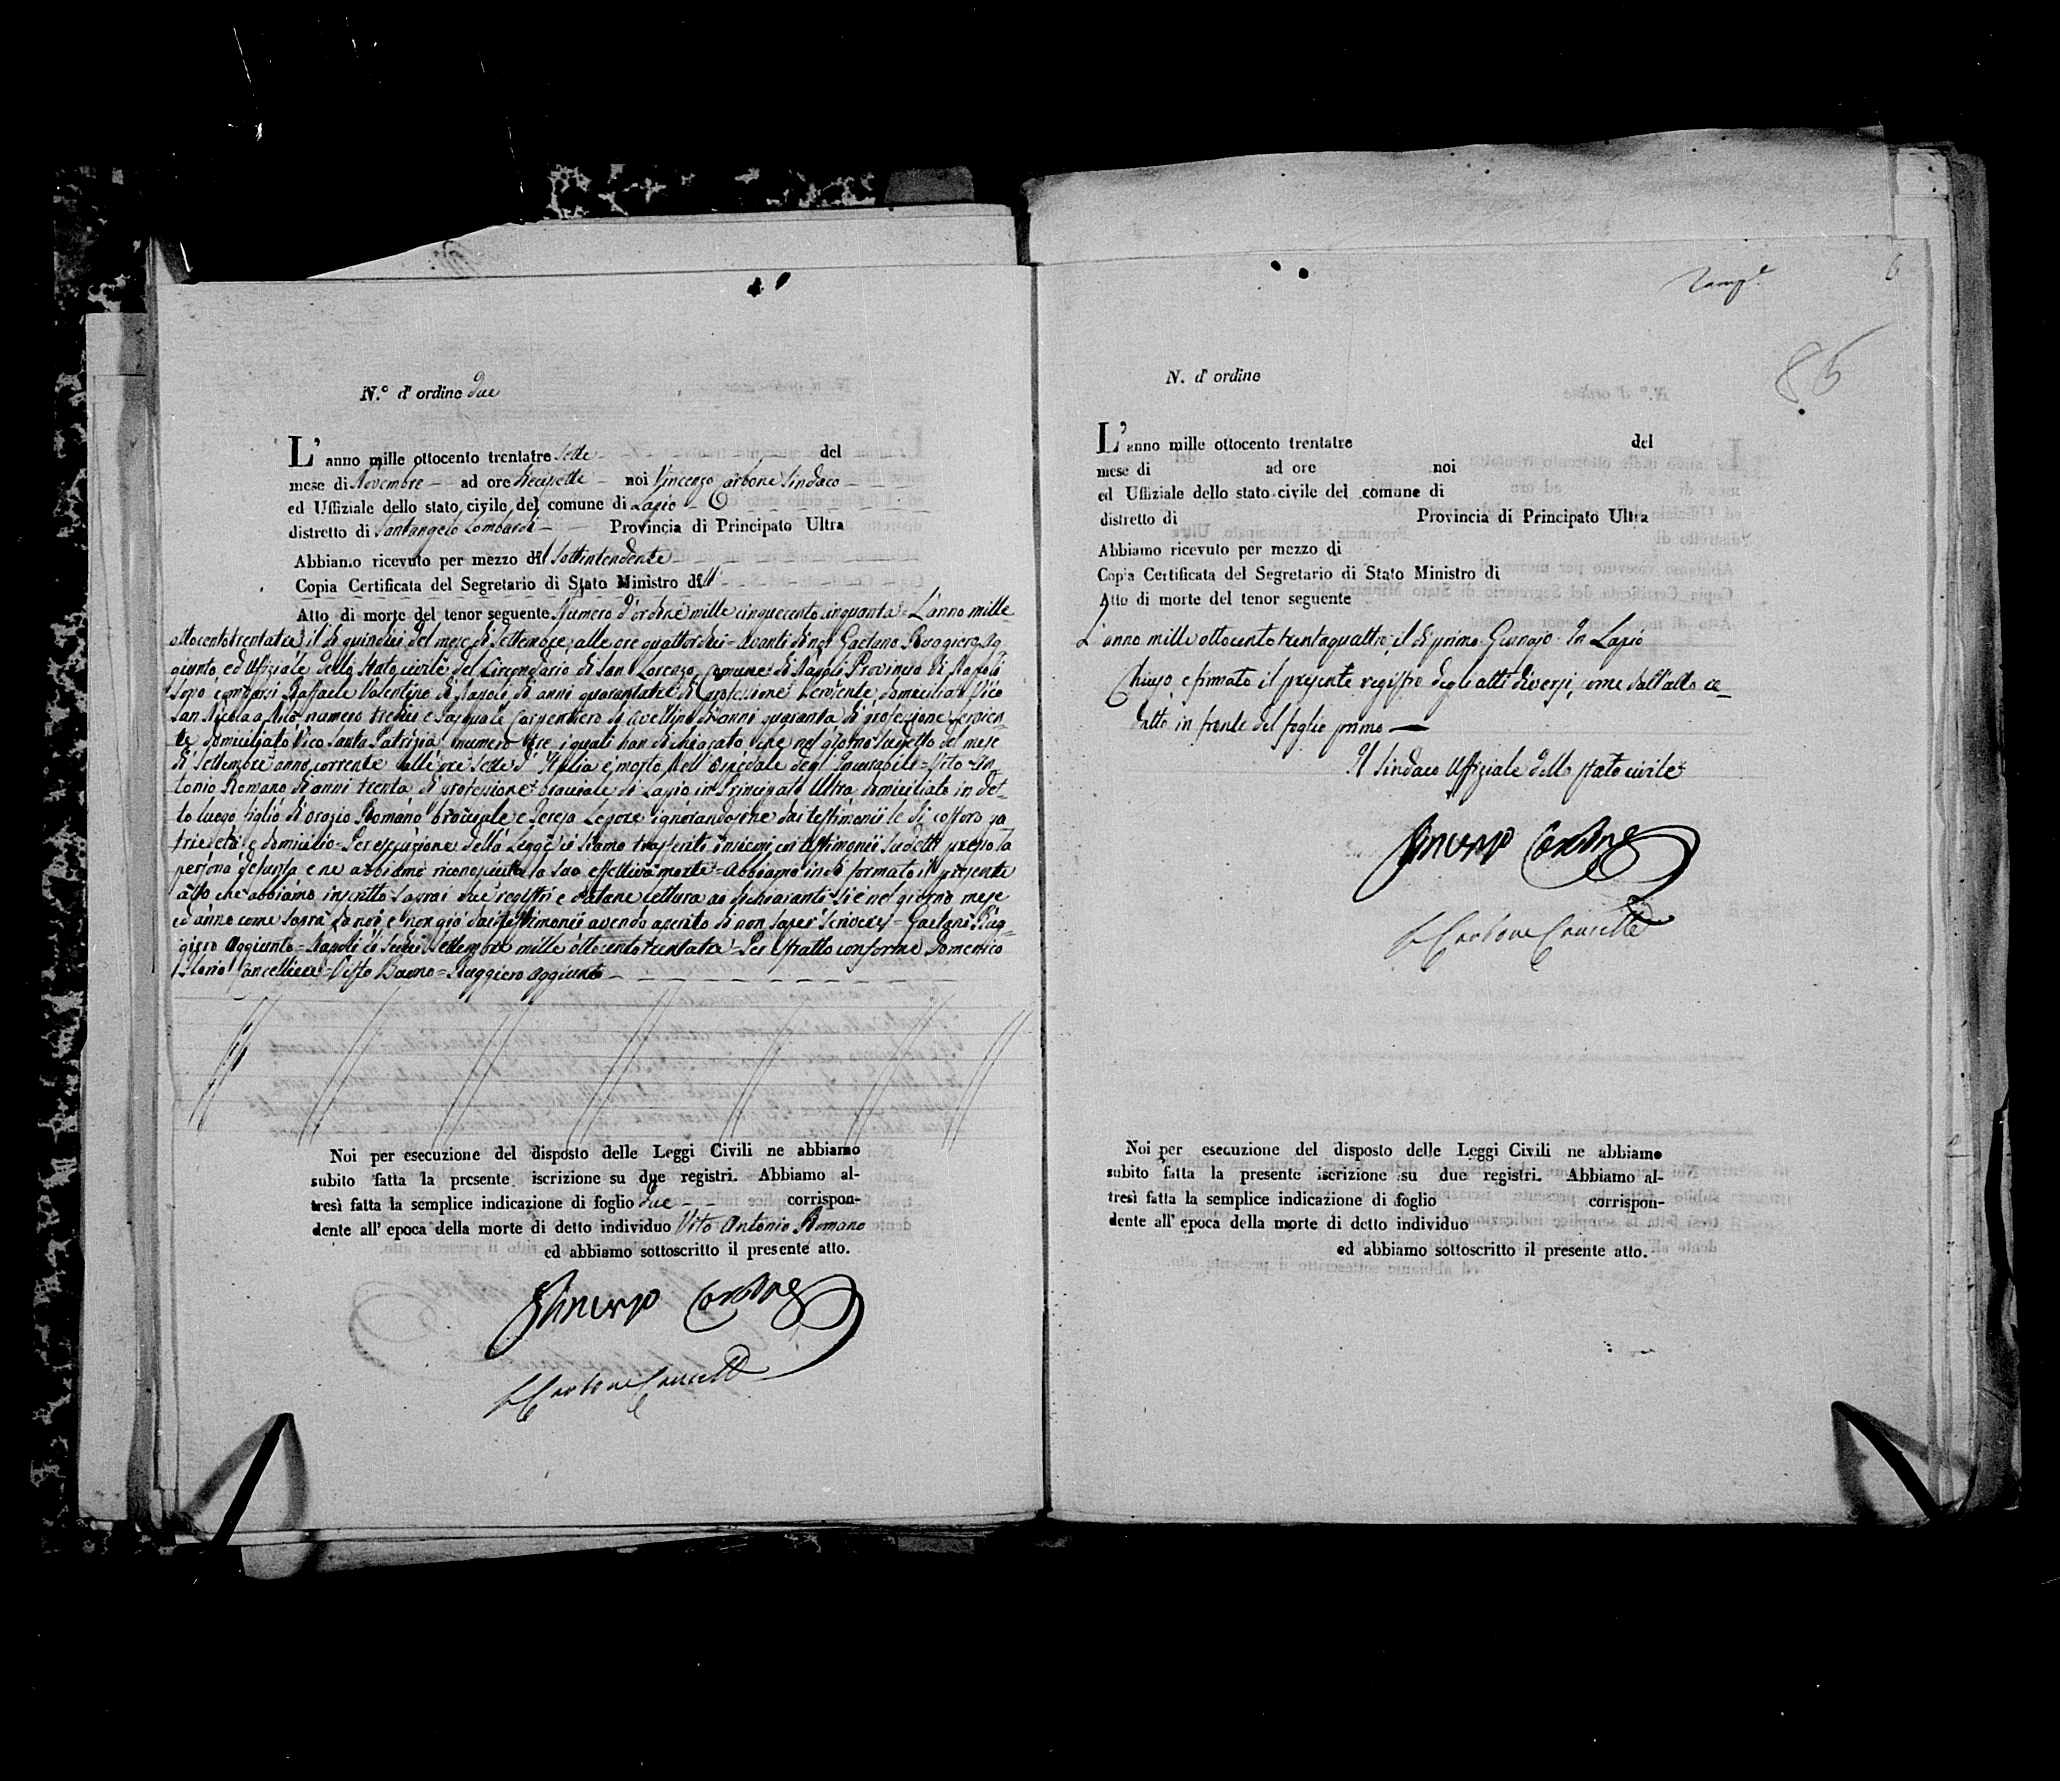 N.º d' ordine due
L' anno mille ottocento trentatre sette del
mese di Novembre ad ore diecisette noi Vincenzo Carbone Sindaco
ed Uffiziale dello stato civile del comune di Lapio
distretto di Santangelo Lombardi Provincia di Principato Ultra
Abbiamo ricevuto per mezzo del Sottintendente
Copia Certificata del Segretario di Stato Ministro di
Atto di morte del tenor seguente Numero d'ordine mille cinquecento cinquanta = L'anno mille
ottocento trentatre, il dì quindici del mese di Settembre, alle ore quattordici = Avanti di noi Gaetano Ruggiero Ag
giunto, ed Uffiziale dello Stato civile del Circondario di San Lorenzo, Comune di Napoli Provincia di Napoli
sono comparsi Raffaele Valentino di Napoli, di anni quarantatre di professione serviente domiciliato Vico
San Nicola a Nilo numero tredici e Pasquale Carpentiero di Avellino di anni quaranta di professione servien-
te domiciliato Vico Santa Patrizia numero tre i quali han dichiarato che nel giorno suddetto del mese
di Settembre anno corrente alle ore sette d' Italia è morto nell' Ospedale degl' Incurabili = Vito An
tonio Romano di anni trenta di professione bracciale di Lapio in Principato Ultra domiciliato in det-
to luogo figlio di Orazio Romano bracciale e Teresa Lepore ignorandosene dai testimonii le di costoro pa
trie età e domicilio = Per esecuzione della Legge ci siamo trasferiti insiemi coi testimonii sudetti presso la
persona defunta e ne abbiamo riconosciuta la sua effettiva morte = Abbiamo indi formato il presente
atto che abbiamo inscritto sopra i due registri e datane lettura ai dichiaranti si è nel giorno mese
ed anno come sopra da noi, e non già dai testimonii avendo asserito di non saper scrivere = Gaetano Rug-
giero Aggiunto = Napoli li Settembre mille ottocento trentatre = Per estratto conforme Domenico
Cancelliere = Visto Buono = Ruggiero Aggiunto
Noi per esecuzione del disposto delle Leggi Civili ne abbiamo
subito fatta la presente iscrizione su due registri. Abbiamo al-
tresì fatta la semplice indicazione di foglio due corrispon-
dente all' epoca della morte di detto individuo Vito Antonio Romano
ed abbiamo sottoscritto il presente atto.
Vincenzo Carbone
Carbone Cancell
6
86
N. d' ordine
L' anno mille ottocento trentatre del
mese di ad ore noi
ed Uffiziale dello stato civile del comune di
distretto di Provincia di Principato Ultra
Abbiamo ricevuto per mezzo di
Copia Certificata del Segretario di Stato Ministro di
Atto di morte del tenor seguente
L' anno mille ottocento trentaquattro il dì primo Gennajo In Lapio
Chiuso e firmato il presente registro degli atti diversi, come dall'atto re-
datto in fronte del foglio primo
Il Sindaco Uffiziale dello stato civile
Vincenzo Carbone
Carbone Cancelle
Noi per esecuzione del disposto delle Leggi Civili ne abbiamo
subito fatta la presente iscrizione su due registri. Abbiamo al-
tresì fatta la semplice indicazione di foglio corrispon-
dente all' epoca della morte di detto individuo
ed abbiamo sottoscritto il presente atto.